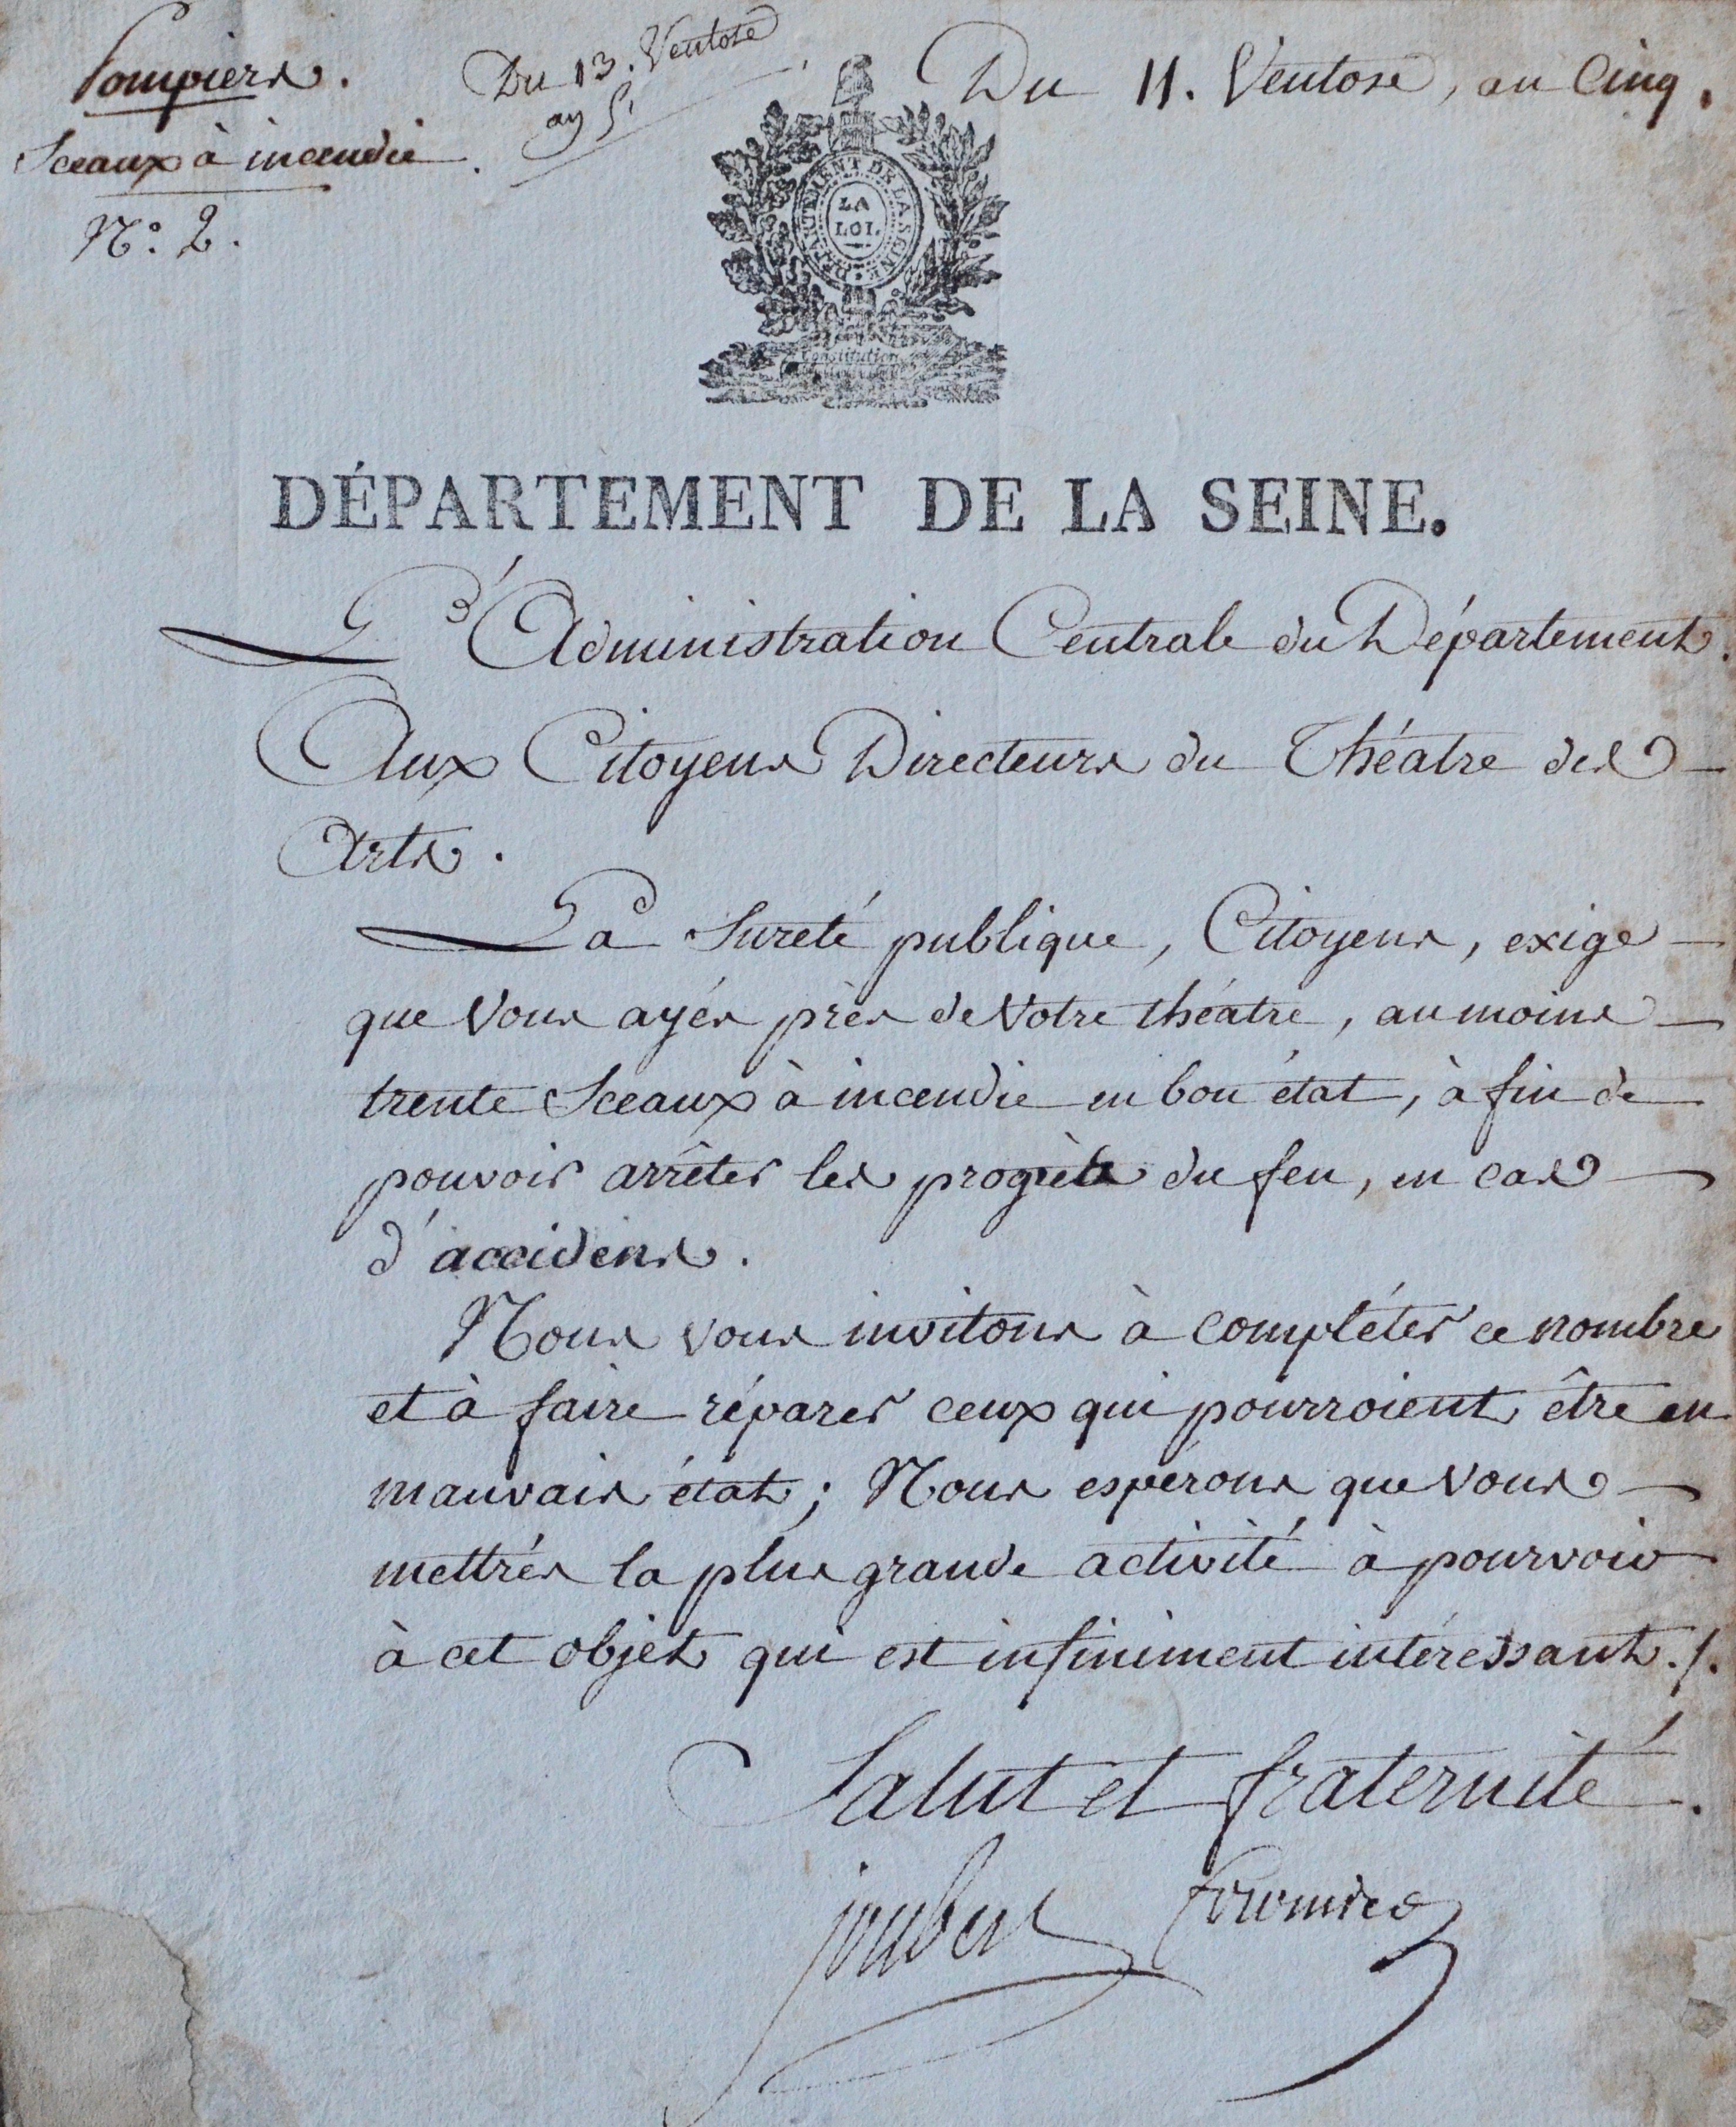 Pompiers.
Sceaux à incendie.
N.° 2.
Du 13. Ventose
an 5
Du 11. Ventose, an Cinq.
DÉPARTEMENT DE LA SEINE
LA
LOI.
Constitution
DÉPARTEMENT DE LA SEINE.
L'Administration Centrale du Département.
Aux Citoyens Directeurs du Théatre des
Arts.
La Sureté publique, Citoyens, exige
que Vous ayés près de Votre théatre, au moins
trente Sceaux à incendie en bon état, à fin de
pouvoir arrêter les progrès du feu, en cas
d'accidens.
Nous vous invitons à compléter ce nombre
et à faire réparer ceux qui pourroient être en
mauvais état; Nous espérons que Vous
mettrés la plus grande activité à pourvoir
à cet objet qui est infiniment intéressant ./.
Salut et fraternité.
joubert